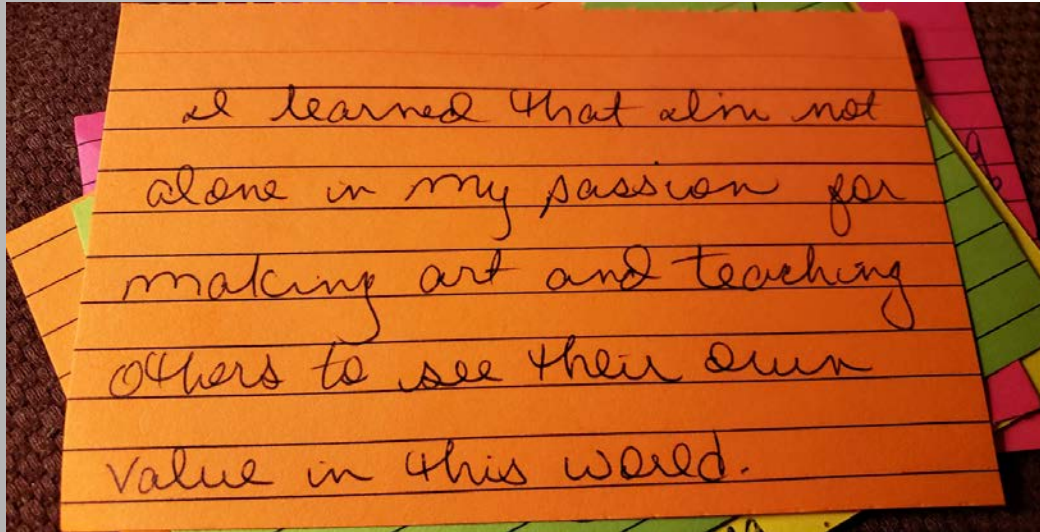 I learned that I'm not
alone in my passion for
making art and teaching
others to see their own
value in this world.